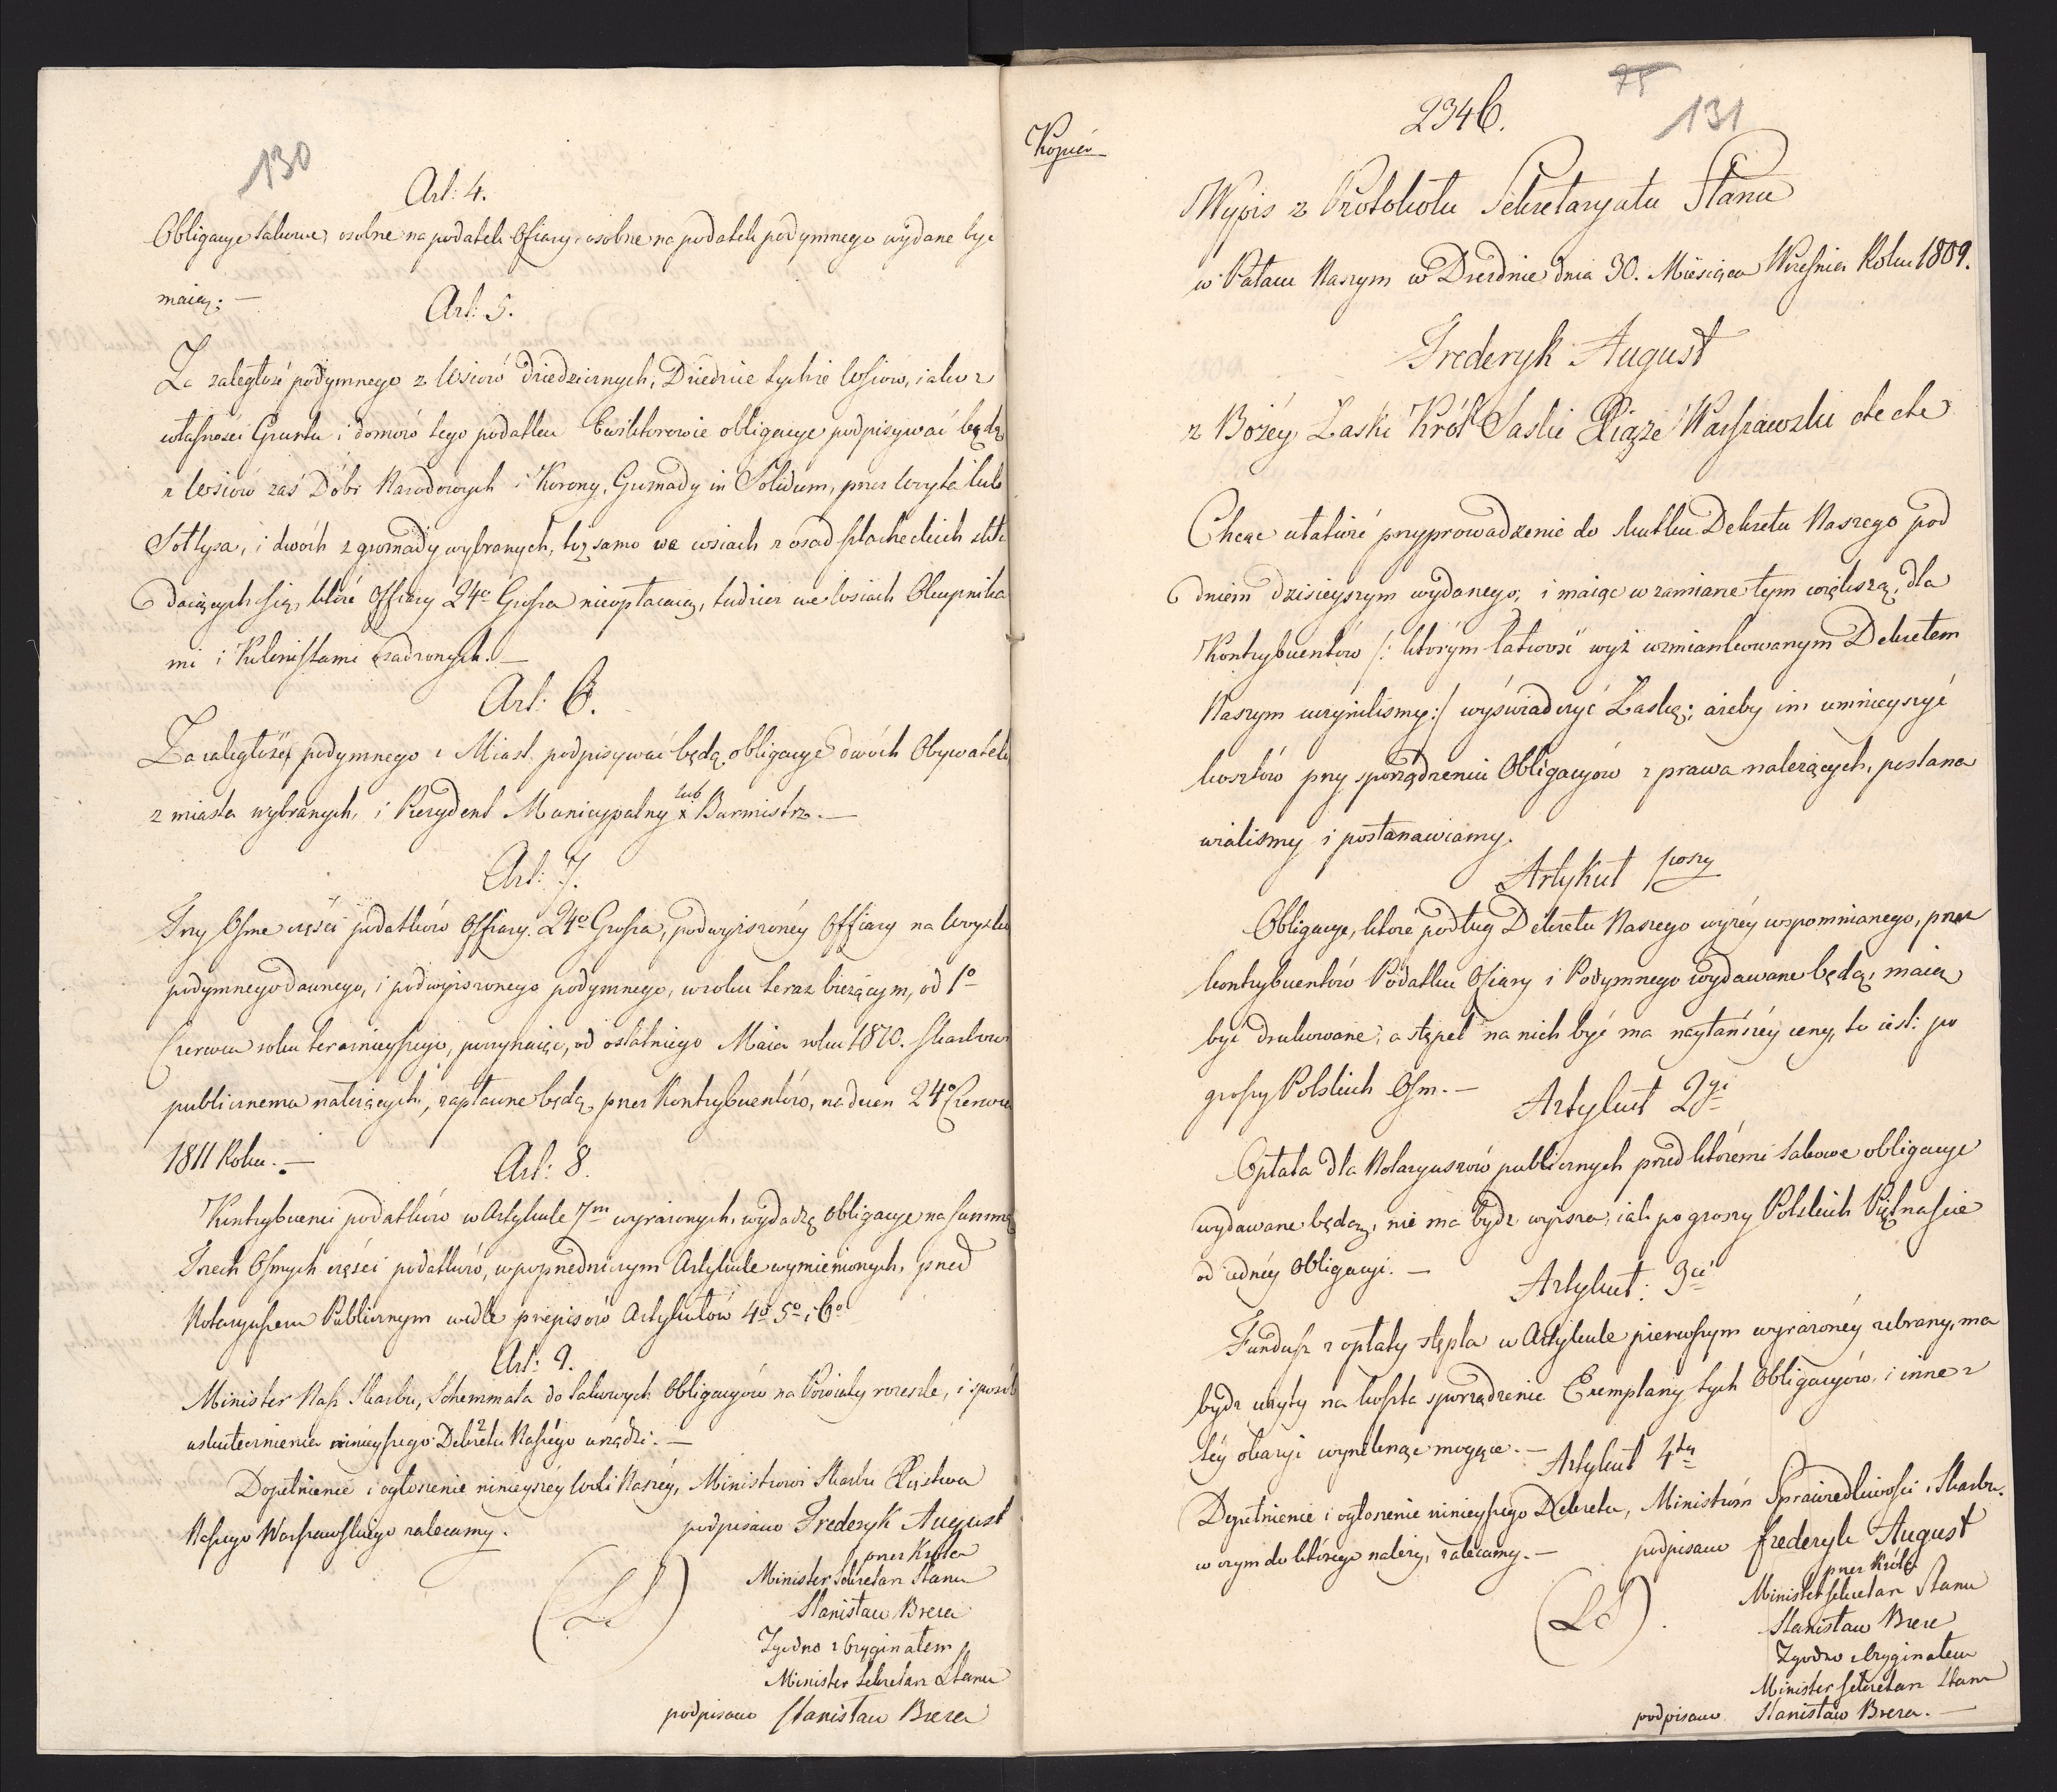 130
Art: 4.
Obligacye takowe, osobne na podatek Ofiary, osobne na podatek podymnego wydane być
maią. —
Art: 5.
Za zaległość podymnego z Wsiów dziedzicznych, Dziedzice tychże Wsiów, iako z
własności Gruntu i domów tego podatku Exviktorowie obligacye podpisywać będą
z Wsiów zaś Dóbr Narodowych i Korony, Gromady in Solidum, przez Woyta lub
Sołtysa, i dwóch z gromady wybranych, toż samo we wsiach z osad szlacheckich skła
daiących się, które Offiary 24o Grosza nieopłacaią, tudzież we wsiach Okupnika
mi i Kolonistami osadzonych. —
Art: 6.
Za zaległość podymnego z Miast podpisywać będą obligacye dwóch Obywateli
z miasta wybranych, i Prezydent Municypalny lub Burmistrz. —
Art: 7.
Trzy Osme części podatków Offiary 24o Grosza, podwyższonéy Offiary na Wszystko
podymnego dawnego, i podwyższonego podymnego, w roku teraz bieżącym, od 1o
Czerwca roku teraznieyszego, poczynaiąc, od ostatniego Maia roku 1810. Skarbowi
publicznemu należących, zapłacone będą przez Kontrybuentów, na dzień 24o Czerwca
1811 Roku. —
Art: 8.
Kontrybuenci podatków w Artykule 7m wyrażonych, wydadzą obligacye na summę
Trzech Osmych części podatków, w poprzedniczym Artykule wymienionych, przed
Notaryuszem Publicznym wedle przepisów Artykułów 4o 5o i 6o
Art: 9.
Minister Nasz Skarbu, Schemmata do takowych Obligacyów na Powiaty rozeszle, i sposób
uskutecznienia ninieyszego Dekretu Naszégo urządzi. —
Dopełnienie i ogłoszenie ninieyszéy Woli Naszéy, Ministrowi Skarbu Xięstwa
Naszego Warszawskiego zalecamy.
podpisano Frederyk August
przez Króla
Minister Sekretarz Stanu
Stanisław Breza
(LS)
Zgodno z Oryginałem
Minister Sekretarz Stanu
podpisano Stanisław Breza
75
131
2346.
Kopia
Wypis z Protokołu Sekretaryatu Stanu
w Pałacu Naszym w Dreźnie dnia 30. Miesiąca Września Roku 1809.
Frederyk August
z Bożéy Łaski Król Saski Xiąże Warszawski etc etc
Chcąc ułatwić przyprowadzenie do skutku Dekretu Naszego pod
dniem dzisieyszym wydanego, i maiąc w zamiarze tym większą, dla
Kontrybuentów /: którym łatwość wyż wzmiankowanym Dekretem
Naszym uczyniliśmy :/ wyświadczyć Łaskę; ażeby im umnieyszyć
kosztów przy sporządzeniu Obligacyów z prawa należących, postana
wialiśmy i postanawiamy.
Artykuł 1wszy
Obligacye, które podług Dekretu Naszego wyżéy wspomnianego, przez
kontrybuentów Podatku Ofiary i Podymnego wydawane będą, maią
być drukowane; a stępel na nich być ma naytańszéy ceny, to iest: po
groszy Polskich Osm. —
Artykuł 2gi
Opłata dla Notaryuszów publicznych przed któremi takowe obligacye
wydawane będą, nie ma bydz wyższa, iak po groszy Polskich Piętnaście
od iednéy Obligacyi. —
Artykuł: 3ci
Fundusz z opłaty stępla w Artykule pierwszym wyrażonéy zebrany, ma
bydz użyty na koszta sporządzenie Exemplarzy tych Obligacyów, i inne z
téy okazyi wyniknąc mogące. —
Artykuł 4ty
Dopełnienie i ogłoszenie ninieyszego Dekretu, Ministróm Sprawiedliwości i Skarbu
w czym do którego należy, zalecamy. —
podpisano Frederyk August
przez Króla
Minister Sekretarz Stanu
Stanisław Breza
(LS).
Zgodno z Oryginałem
Minister Sekretarz Stanu
podpisano Stanisław Breza. —